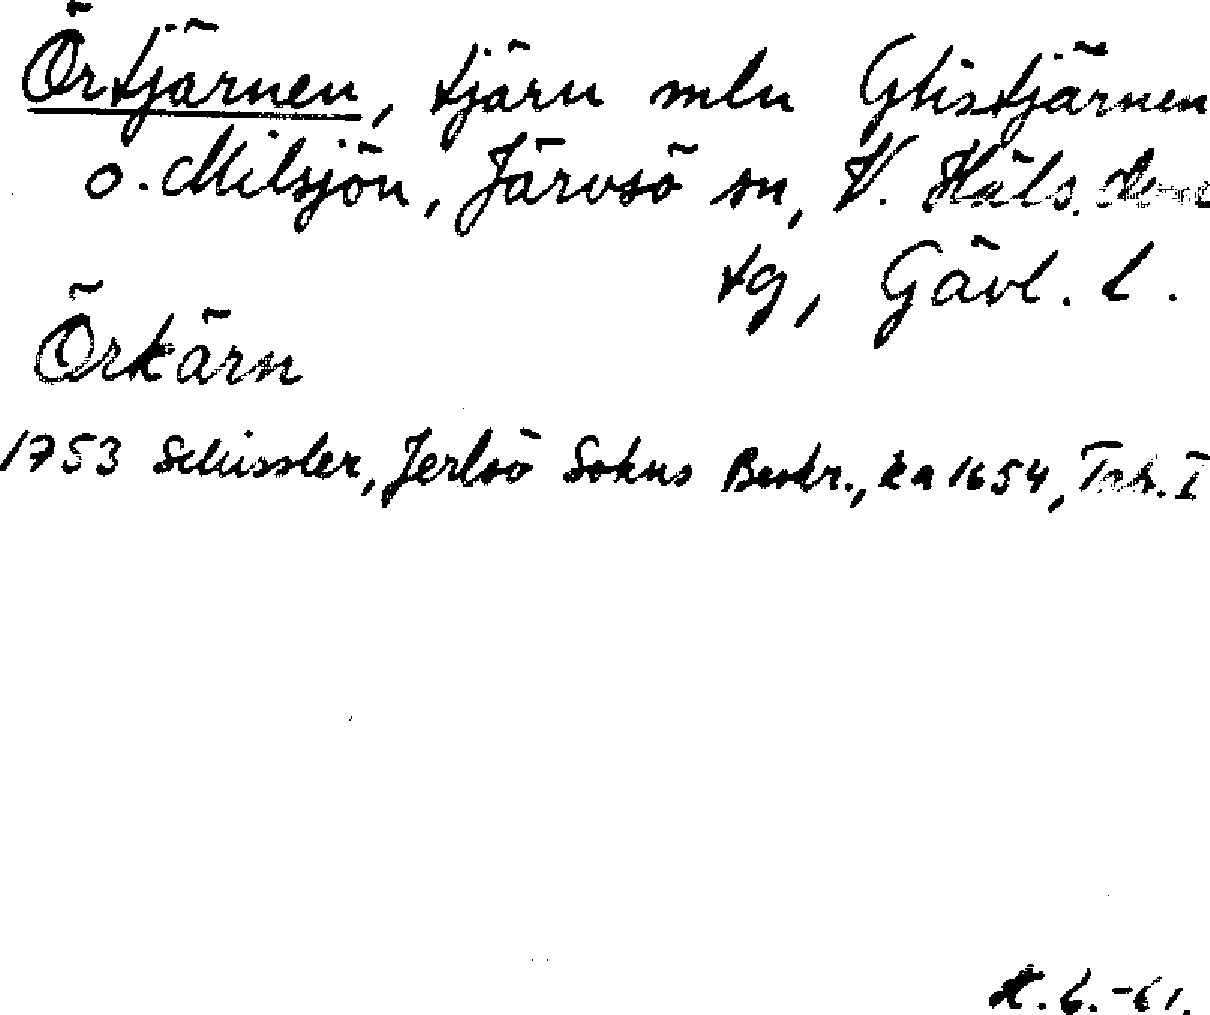 Örtjärnen, tjärn mln Glistjärnen
o. Milsjön, Järvsö sn, V. Häls.
tg, Gävl. l.
Örkärn
1753 Schissler, Jerlsö Sokns Beskr., ka 1654, Tab. I
6.-61.